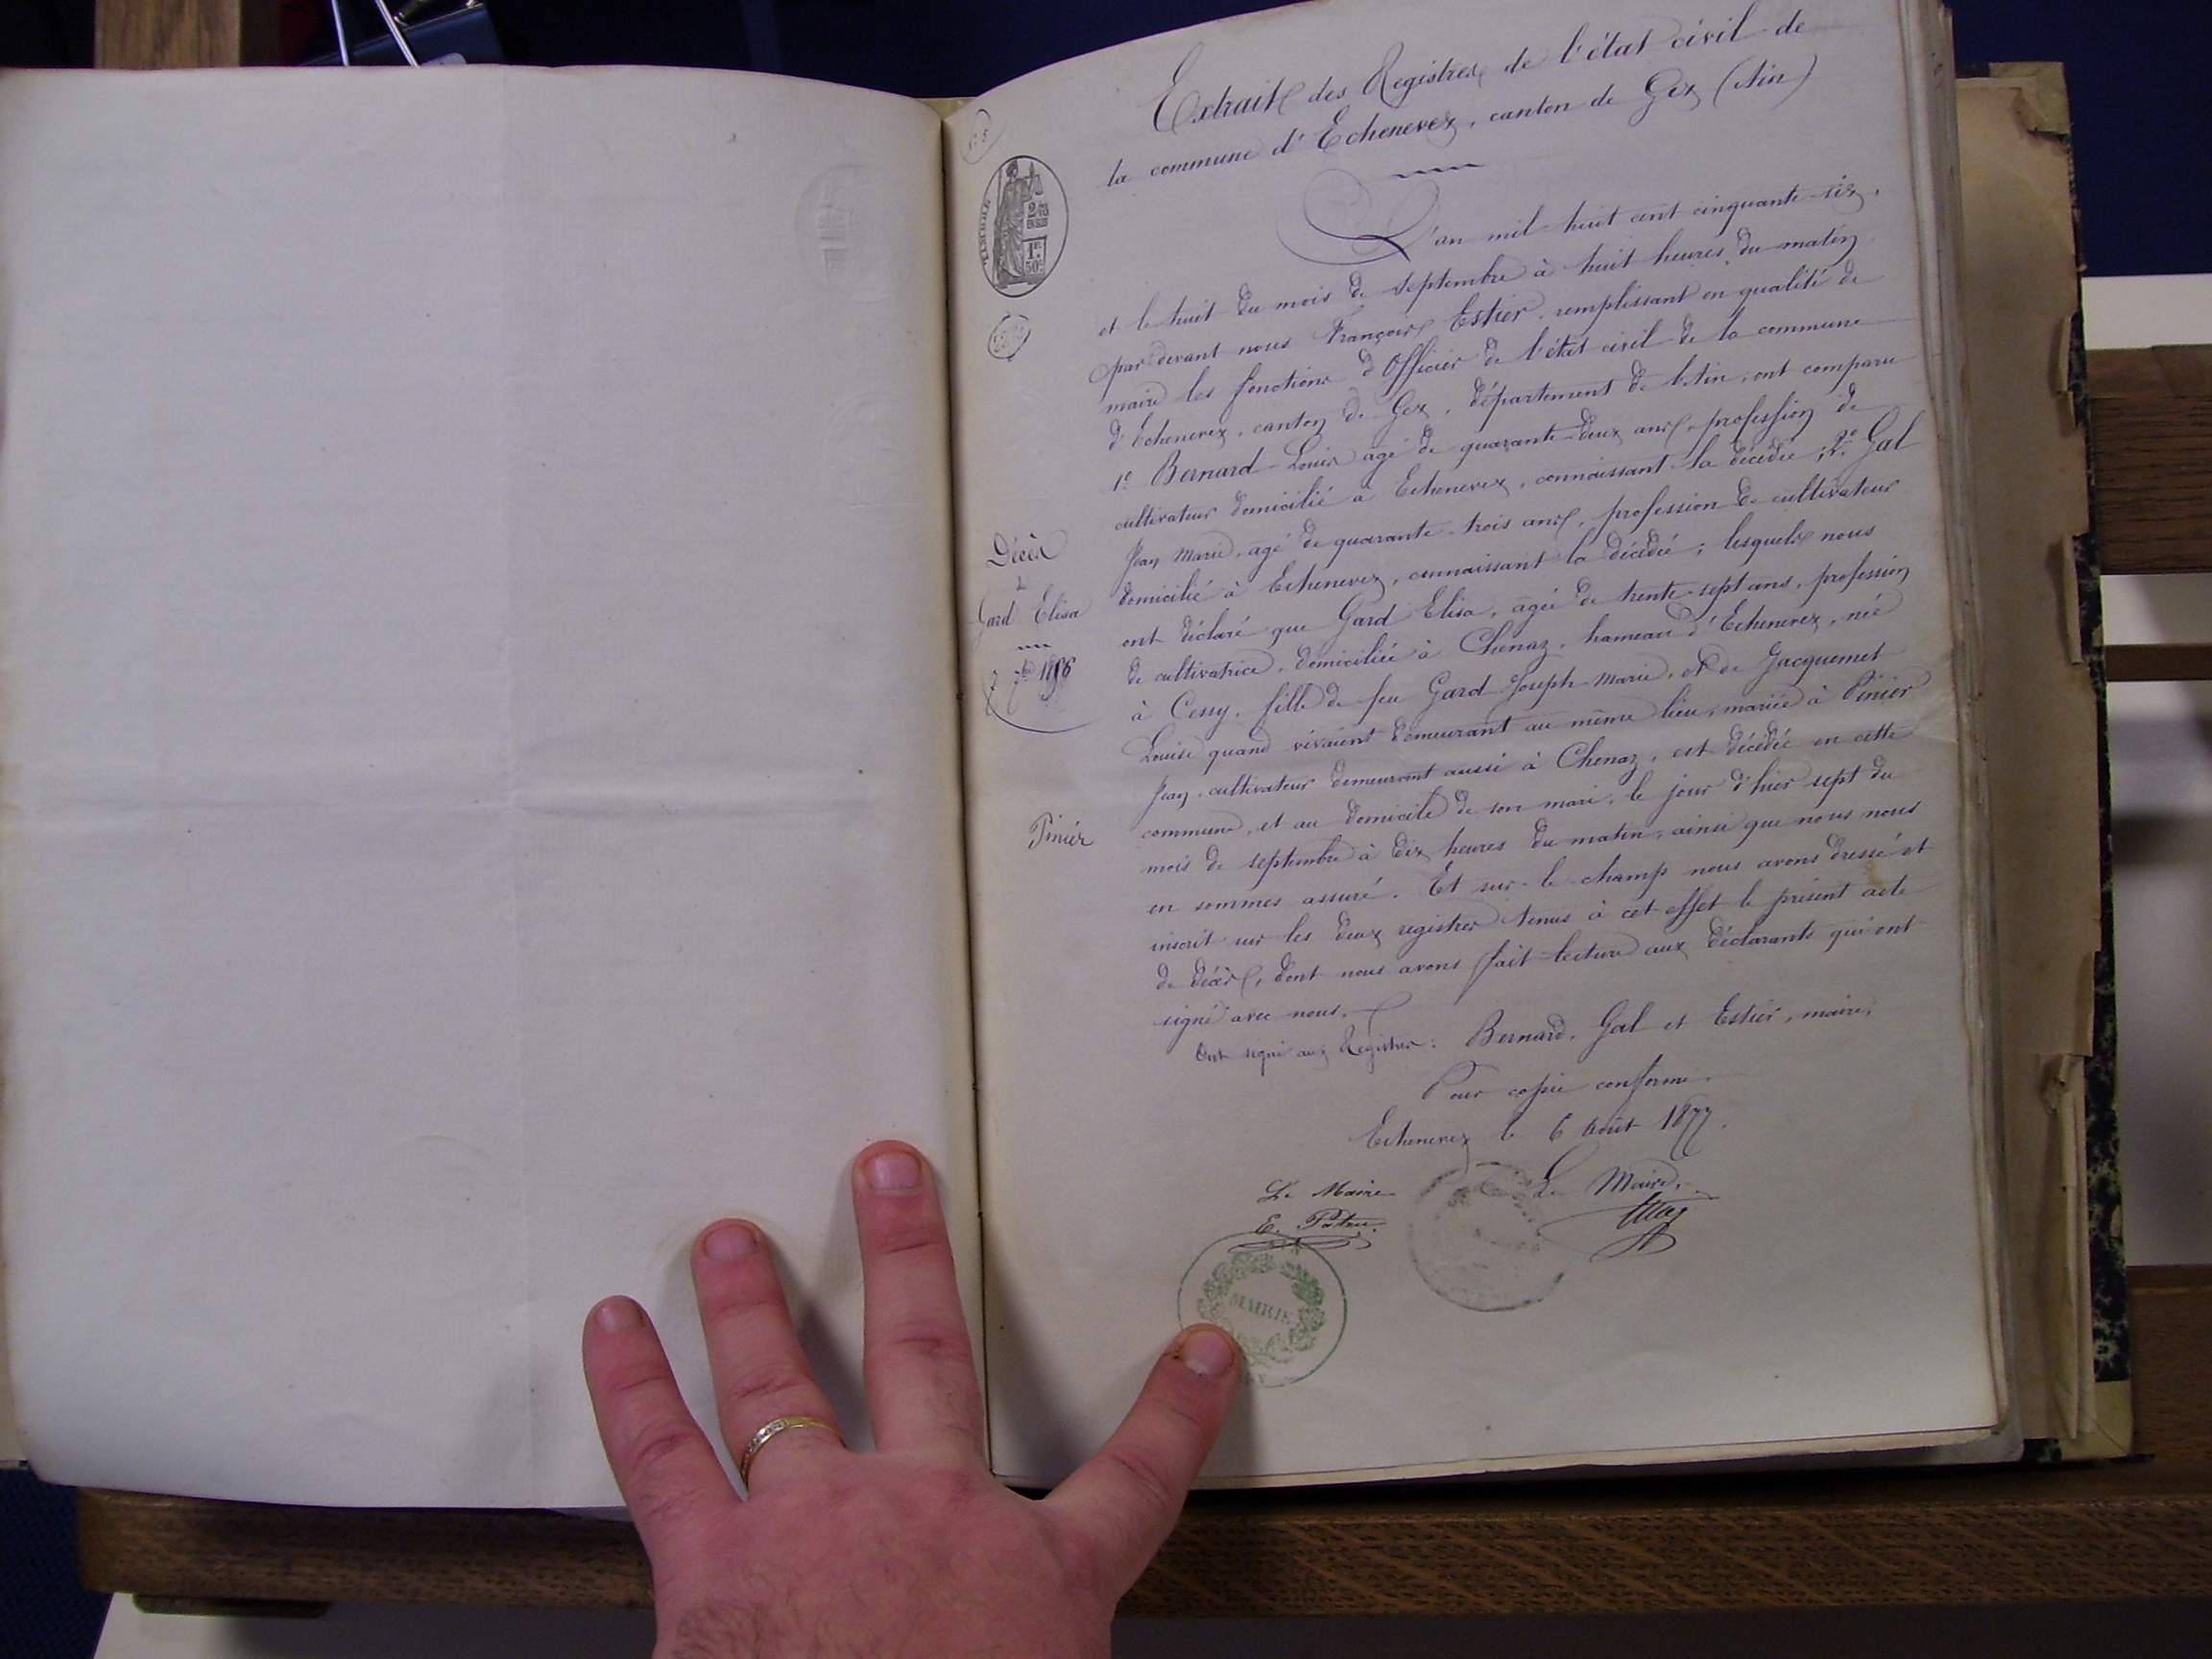 Extrait des Registres de l'état civil de
la commune d'Echenevex, canton de Gex (Ain)
TIMBRE
1F
50c
L'an mil huit cent cinquante-six,
et le huit du mois de septembre à huit heures du matin
par devant nous François Estier, remplissant en qualité de
maire les fonctions d'Officier de l'état civil de la commune
d'Echenevex, canton de Gex, département de l'Ain, ont comparu
1º Bernard Louis agé de quarante-deux ans, profession de
cultivateur domicilié à Echenevex, connaissant la décédée ; 2º Gal
Jean Marie, agé de quarante-trois ans, profession de cultivateur
domicilié à Echenevex, connaissant la décédée ; lesquels nous
ont déclaré que Gard Elisa, agée de trente-sept ans, profession
de cultivatrice, domiciliée à Chenaz, hameau d'Echenevex, née
à Cessy, fille de feu Gard Joseph Marie, et de Jacquemet
Louise quand vivaient demeurant au même lieu, mariée à Pinier
Jean, cultivateur demeurant aussi à Chenaz, est décédée en cette
commune, et au domicile de son mari, le jour d'hier sept du
mois de septembre à dix heures du matin, ainsi que nous nous
en sommes assuré. Et sur-le-champ nous avons dressé et
inscrit sur les deux registres tenus à cet effet le présent acte
de décès, dont nous avons fait lecture aux déclarants qui ont
signé avec nous.
Décès
de
Gard Elisa
1856
Pinier
Ont signé aux Registres : Bernard, Gal et Estier, maire.
Pour copie conforme.
Echenevex le 6 Août 1877.
Le Maire
Le Maire,
E.
MAIRIE